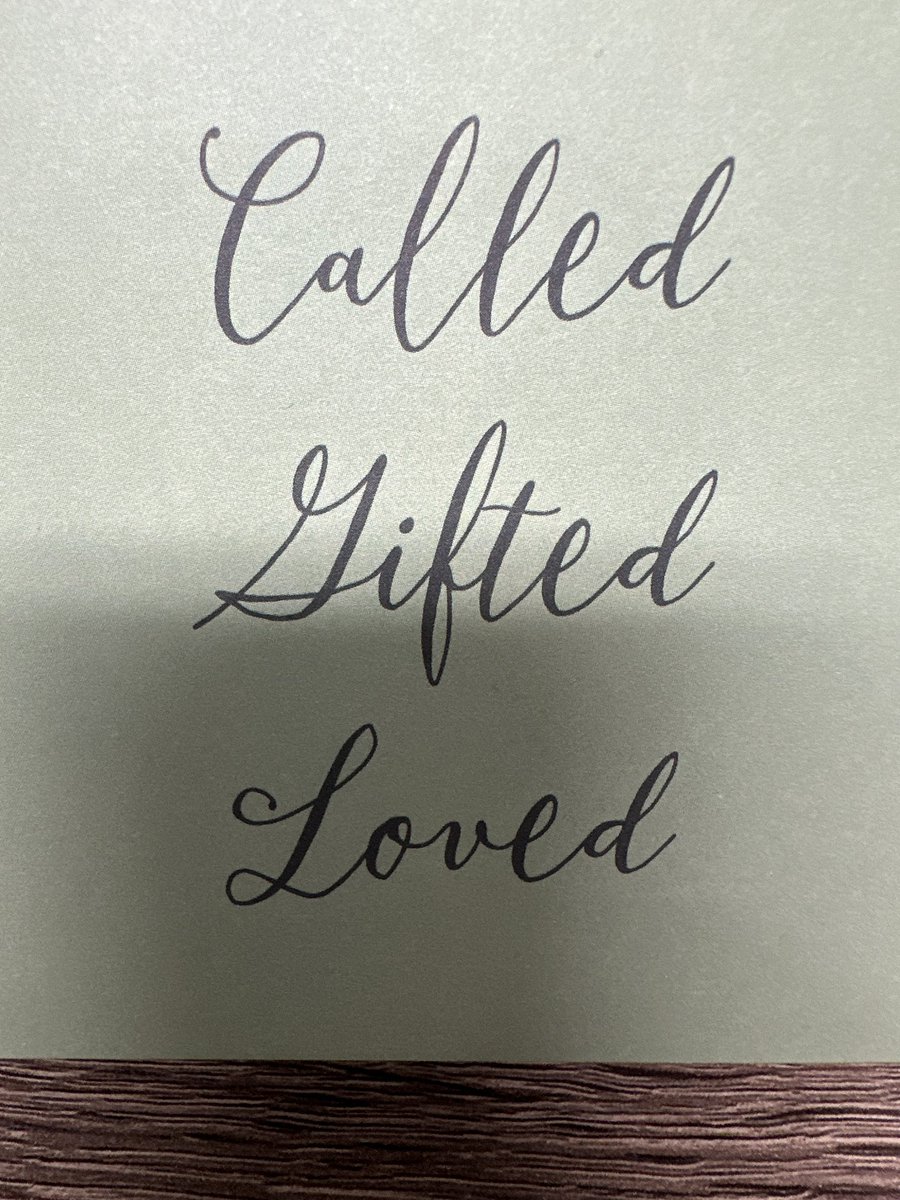 Called
Gifted
Loved